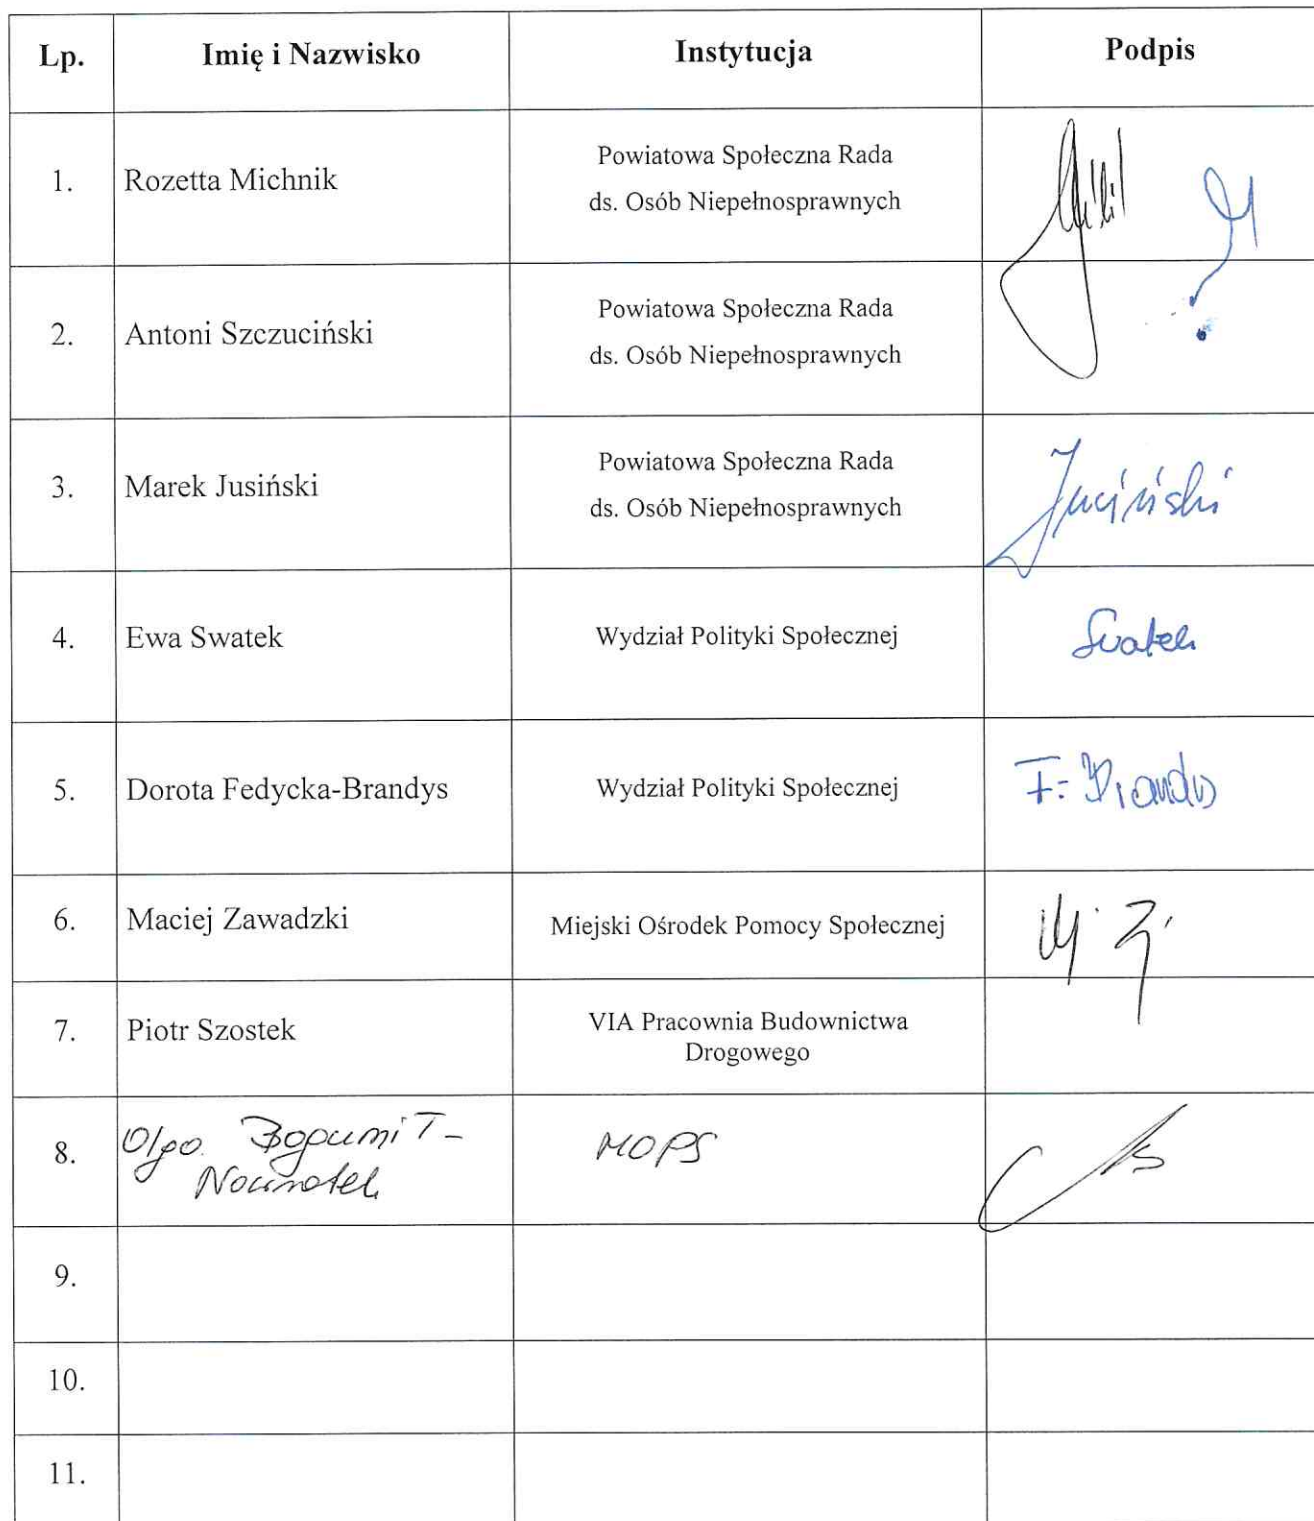 Lp. Imię i Nazwisko Instytucja Podpis
1. Rozetta Michnik Powiatowa Społeczna Rada
ds. Osób Niepełnosprawnych
2. Antoni Szczuciński Powiatowa Społeczna Rada
ds. Osób Niepełnosprawnych
3. Marek Jusiński Powiatowa Społeczna Rada
ds. Osób Niepełnosprawnych
Jusiński
4. Ewa Swatek Wydział Polityki Społecznej Swatek
5. Dorota Fedycka-Brandys Wydział Polityki Społecznej F-Brandys
6. Maciej Zawadzki Miejski Ośrodek Pomocy Społecznej
7. Piotr Szostek VIA Pracownia Budownictwa
Drogowego
8. Olga Bogumił- MOPS
9.
10.
11.